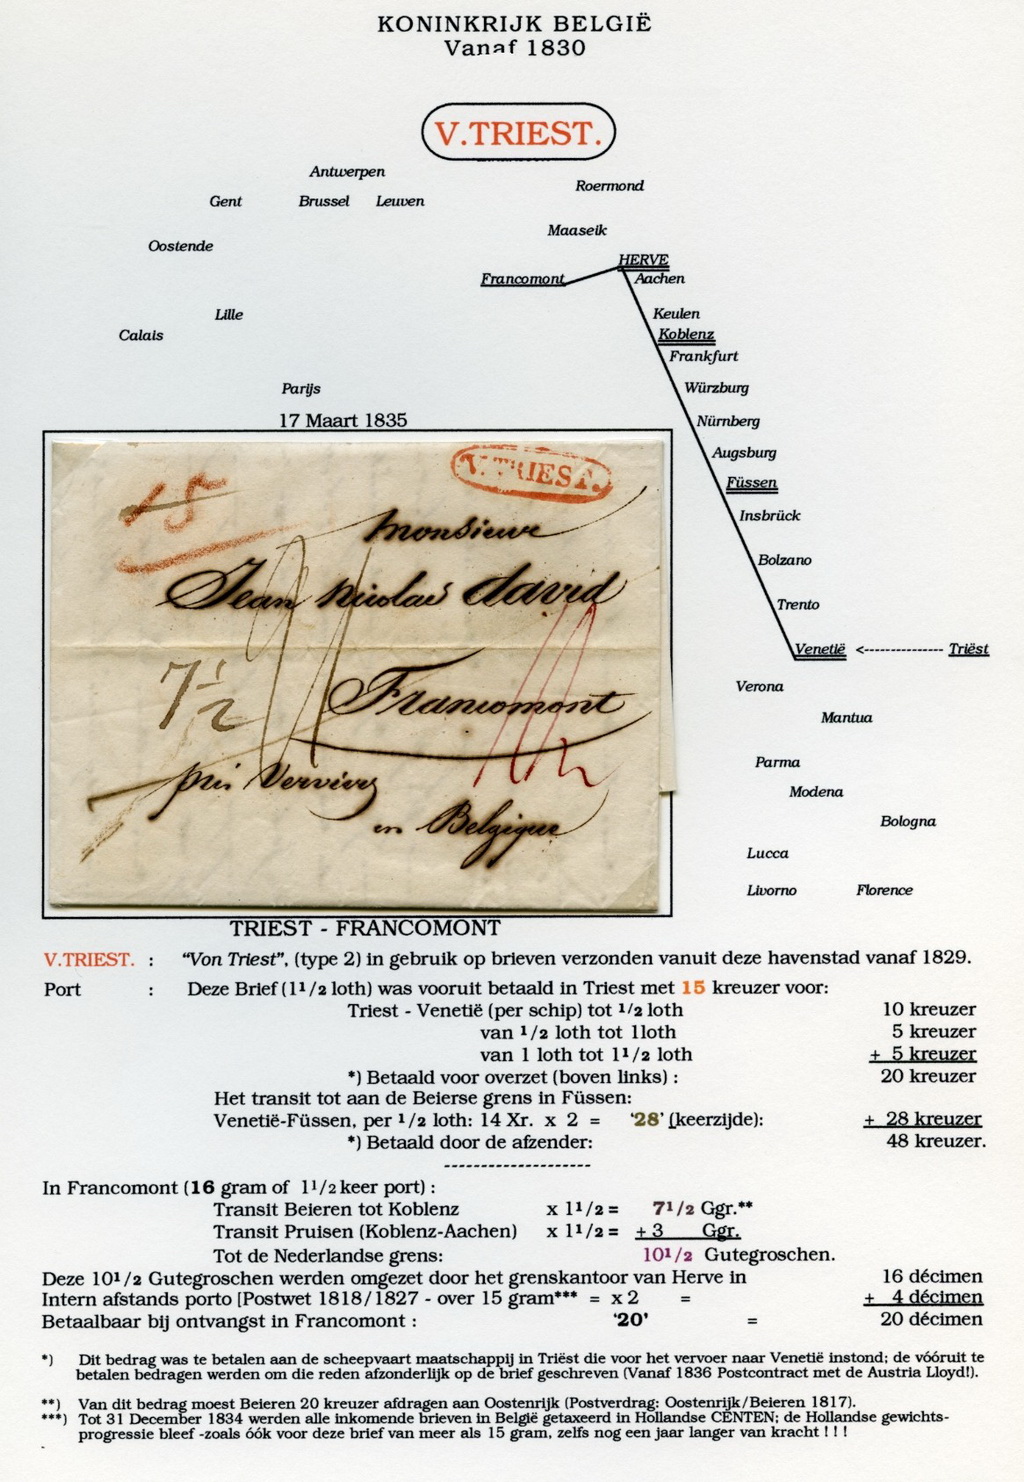 KONINKRIJK BELGIË
Vanaf 1830
V.TRIEST.
Antwerpen
Roermond
Gent
Brussel
Leuven
Maaseik
Oostende
HERVE
Francomont
Aachen
Lille
Keulen
Calais
Koblenz
Frankfurt
Parijs
Würzburg
17 Maart 1835
Nürnberg
Augsburg
Füssen
Insbrück
Bolzano
Trento
Venetië <-------------- Triëst
Verona
Mantua
Parma
Modena
Bologna
Lucca
Livorno
Florence
V.TRIEST.
15
Monsieur
Jean Nicolas David
7 1/2
Francomont
près Verviers
en Belgique
TRIEST - FRANCOMONT
V.TRIEST. : “Von Triest”, (type 2) in gebruik op brieven verzonden vanuit deze havenstad vanaf 1829.
Port : Deze Brief (1 1/2 loth) was vooruit betaald in Triest met 15 kreuzer voor:
Triest - Venetië (per schip) tot 1/2 loth 10 kreuzer
van 1/2 loth tot 1loth 5 kreuzer
van 1 loth tot 1 1/2 loth + 5 kreuzer
*) Betaald voor overzet (boven links) : 20 kreuzer
Het transit tot aan de Beierse grens in Füssen:
Venetië-Füssen, per 1/2 loth: 14 Xr. x 2 = ‘28’ (keerzijde): + 28 kreuzer
*) Betaald door de afzender: 48 kreuzer.
--------------------
In Francomont (16 gram of 1 1/2 keer port) :
Transit Beieren tot Koblenz x 1 1/2 = 7 1/2 Ggr.**
Transit Pruisen (Koblenz-Aachen) x 1 1/2 = + 3 Ggr.
Tot de Nederlandse grens: 10 1/2 Gutegroschen.
Deze 10 1/2 Gutegroschen werden omgezet door het grenskantoor van Herve in 16 décimen
Intern afstands porto [Postwet 1818/1827 - over 15 gram*** = x 2 = + 4 décimen
Betaalbaar bij ontvangst in Francomont : ‘20’ = 20 décimen
*) Dit bedrag was te betalen aan de scheepvaart maatschappij in Triëst die voor het vervoer naar Venetië instond; de vóóruit te
betalen bedragen werden om die reden afzonderlijk op de brief geschreven (Vanaf 1836 Postcontract met de Austria Lloyd!).
**) Van dit bedrag moest Beieren 20 kreuzer afdragen aan Oostenrijk (Postverdrag: Oostenrijk/Beieren 1817).
***) Tot 31 December 1834 werden alle inkomende brieven in België getaxeerd in Hollandse CENTEN; de Hollandse gewichts-
progressie bleef -zoals óók voor deze brief van meer als 15 gram, zelfs nog een jaar langer van kracht ! ! !